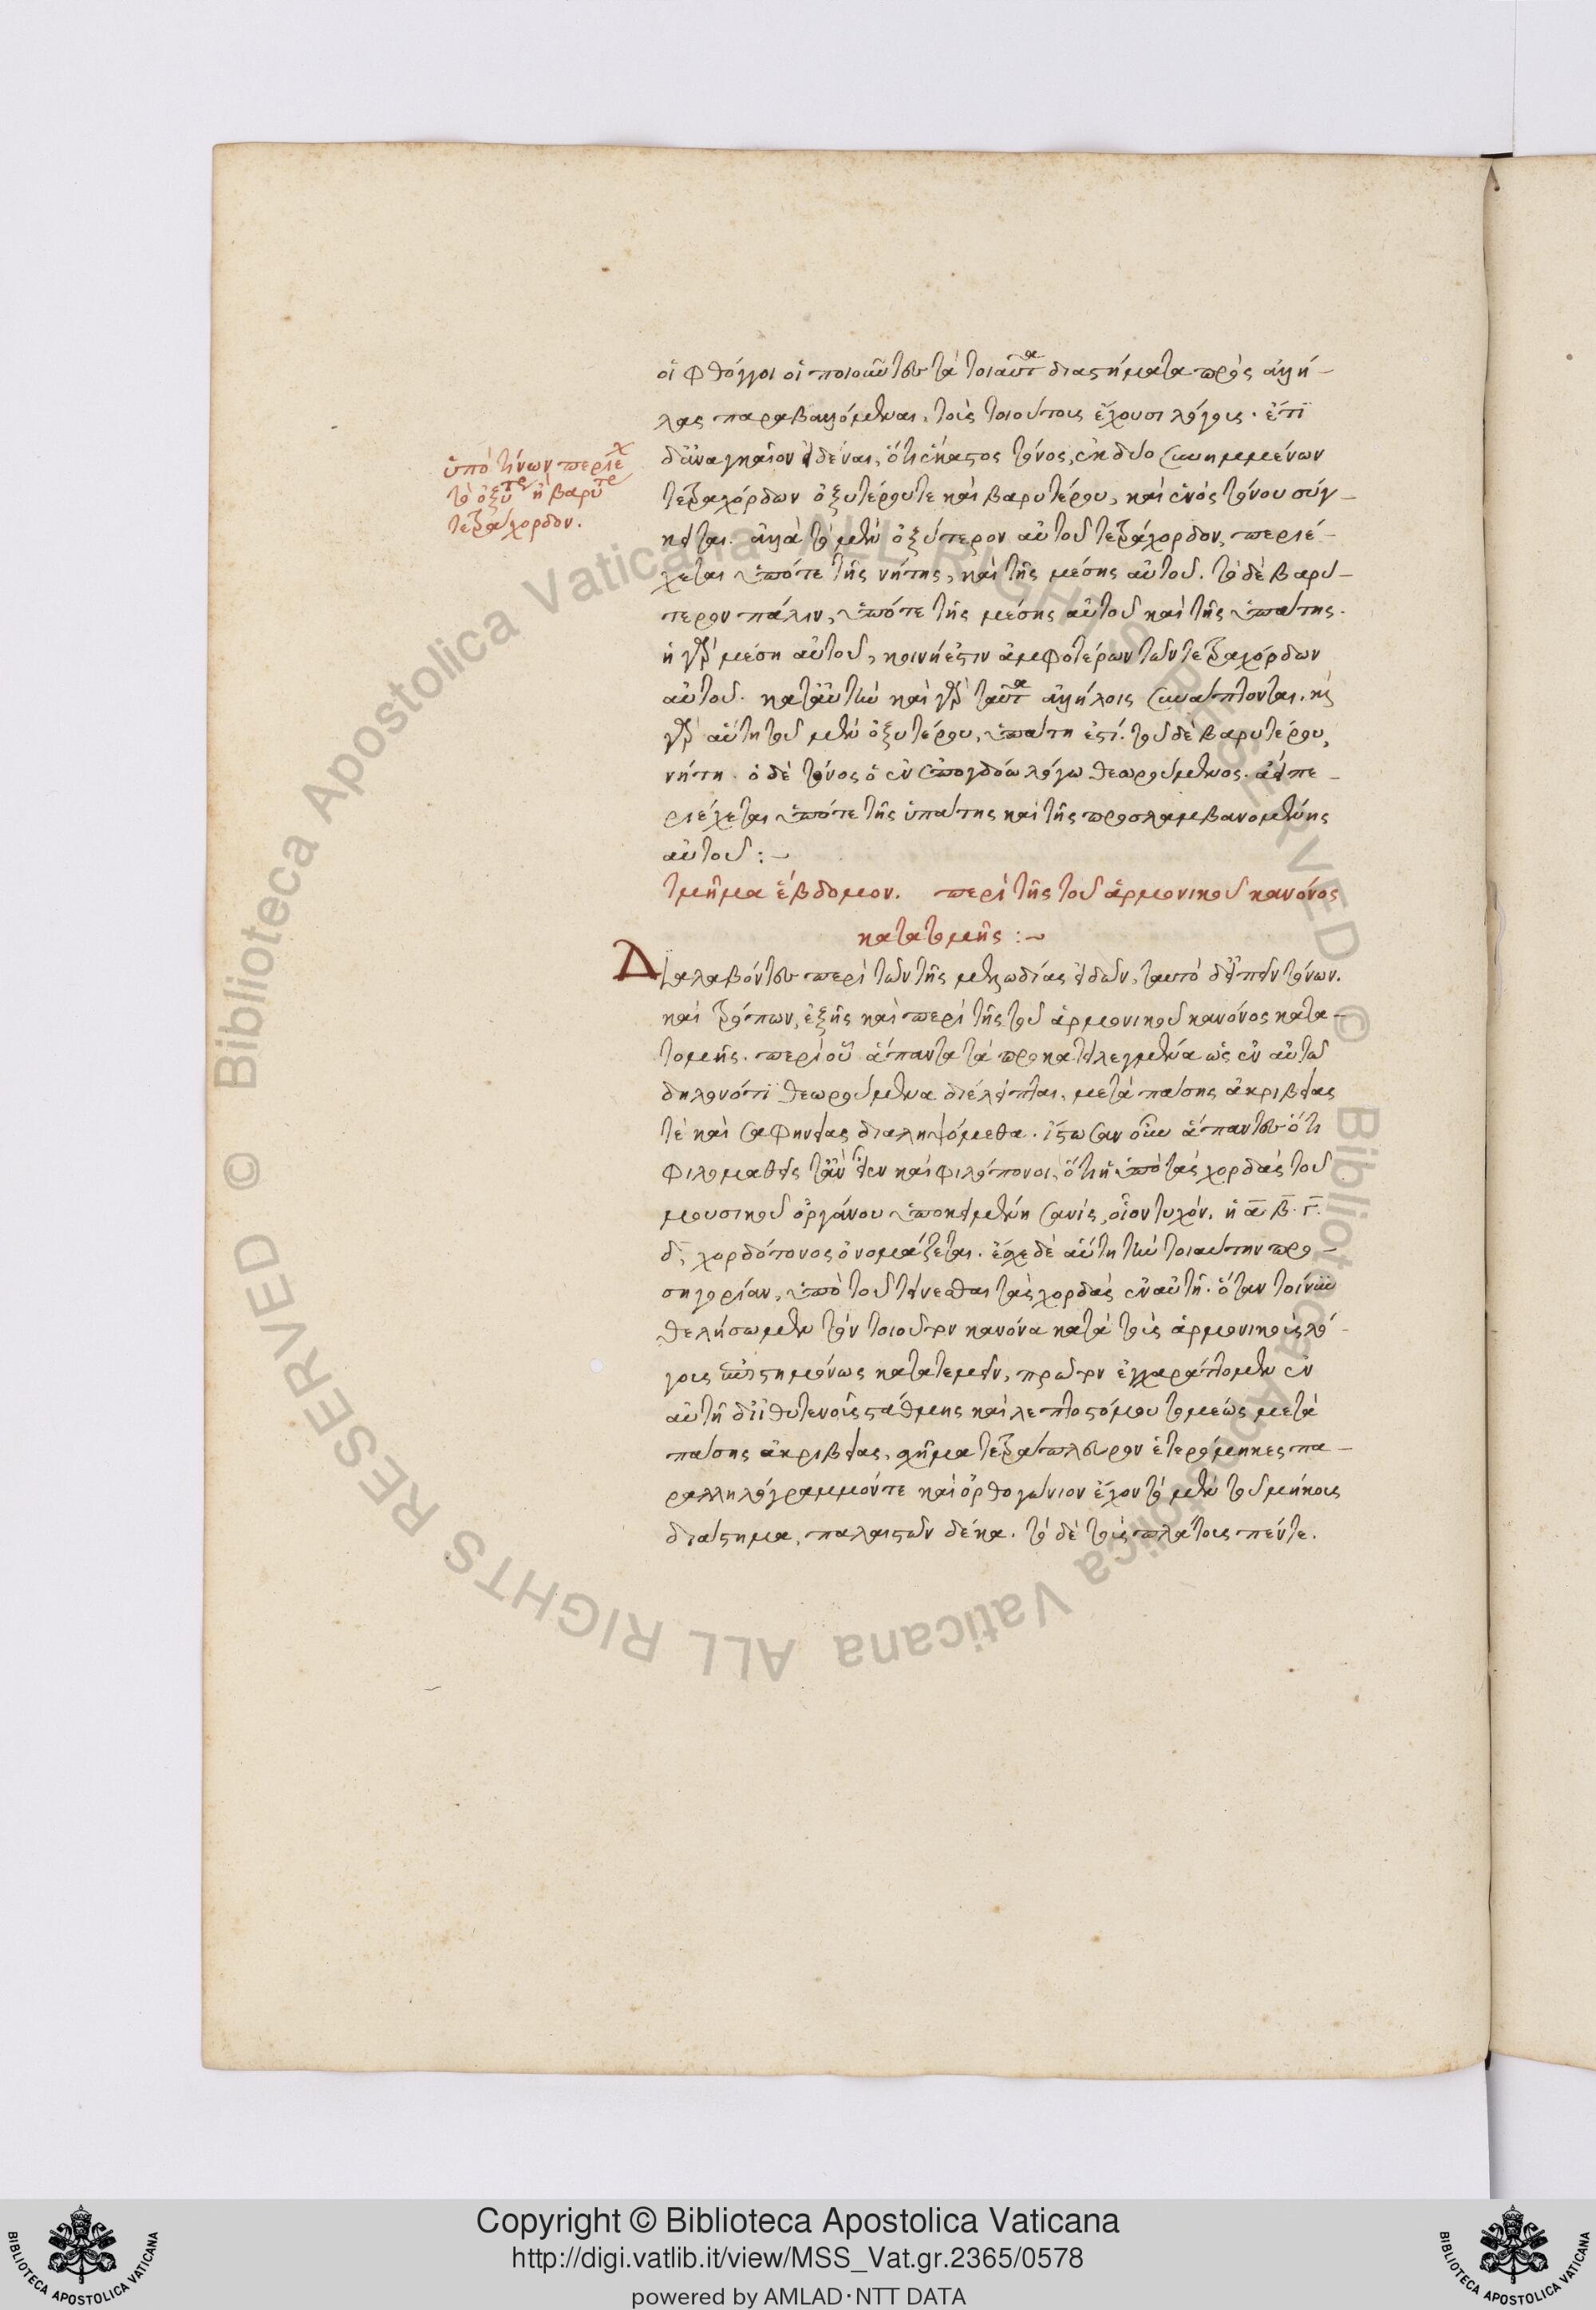 οἱ φθόγγοι οἱ ποιοῦντες τὰ τοιαῦτα διαστήματα πρὸς ἀλλή-
λας παραβαλλόμεναι, τοὺς τοιούτους ἔχουσι λόγους. ἔτι
δ' ἀναγκαῖον εἰδέναι, ὅτι ἕκαστος τόνος, ἐκ δύο συνημμένων
τετραχόρδων ὀξυτέρου τε καὶ βαρυτέρου, καὶ ἑνὸς τόνου σύγ-
κειται. ἀλλὰ τὸ μὲν ὀξύτερον αὐτοῦ τετράχορδον, περιέ-
χεται ὑπό τε τῆς νήτης, καὶ τῆς μέσης αὐτοῦ. τὸ δὲ βαρύ-
τερον πάλιν, ὑπό τε τῆς μέσης αὐτοῦ καὶ τῆς ὑπάτης.
ἡ γὰρ μέση αὐτοῦ, κοινή ἐστιν ἀμφοτέρων τῶν τετραχόρδων
αὐτοῦ. κατ' αὐτὴν καὶ γὰρ ταῦτα ἀλλήλοις συνάπτονται. καὶ
γὰρ αὕτη τοῦ μὲν ὀξυτέρου, ὑπάτη ἐστί. τοῦ δὲ βαρυτέρου,
νήτη. ὁ δὲ τόνος ὁ ἐν ἐπογδόω λόγω θεωρούμενος. ἀεὶ πε-
ριέχεται ὑπό τε τῆς ὑπάτης καὶ τῆς προσλαμβανομένης
αὐτοῦ :~
ὑπὸ τίνων περιέχ
τὸ ὀξύτε ἢ βαρύτε
τετράχορδον.
τμῆμα ἕβδομον. περὶ τῆς τοῦ ἁρμονικοῦ κανόνος
κατατομῆς :~
Διαλαβόντες περὶ τῶν τῆς μελωδίας εἰδῶν, ταυτὸ δ' εἰπεῖν τόνων.
καὶ τρόπων, ἑξῆς καὶ περὶ τῆς τοῦ ἁρμονικοῦ κανόνος κατα-
τομῆς. περὶ οὗ ἅπαντα τὰ προκατειλεγμένα ὡς ἐν αὐτῶ
δηλονότι θεωρούμενα διείλεκται, μετὰ πάσης ἀκριβείας
τὲ καὶ σαφηνείας διαληψόμεθα. ἴστωσαν οὖν ἅπαντες ὅτι
φιλομαθεῖς καὶ φιλόπονοι, ὅτι ἡ ὑπὸ τὰς χορδὰς τοῦ
μουσικοῦ ὀργάνου ὑποκειμένη σανίς, οἷον τυχόν, ἡ α̅ β̅. γ̅.
δ̅, χορδότονος ὀνομάζεται. ἔσχε δὲ αὕτη τὴν τοιαύτην προ-
σηγορίαν, ὑπὸ τοῦ τείνεσθαι τὰς χορδὰς ἐν αὐτῆ. ὅταν τοίνυν
θελήσωμεν τὸν τοιοῦτον κανόνα κατὰ τοὺς ἁρμονικοὺς λό-
γους ἐπιστημόνως κατατεμεῖν, πρῶτον ἐγχαράττομεν ἐν
αὐτῆ δι' ἰθυτενοῦς στάθμης καὶ λεπτοστόμου τομέως μετὰ
πάσης ἀκριβείας, σχῆμα τετράπλευρον ἑτερόμηκες πα-
ραλληλόγραμμόν τε καὶ ὀρθογώνιον ἔχον τὸ μὲν τοῦ μήκους
διάστημα, παλαιστῶν δέκα. τὸ δὲ τοῦ πλάτους πέντε.
Copyright © Biblioteca Apostolica Vaticana
http://digi.vatlib.it/view/MSS_Vat.gr.2365/0578
powered by AMLAD·NTT DATA
BIBLIOTECA APOSTOLICA VATICANA
BIBLIOTECA APOSTOLICA VATICANA
© Biblioteca Apostolica Vaticana ALL RIGHTS RESERVED © Biblioteca Apostolica Vaticana ALL RIGHTS RESERVED